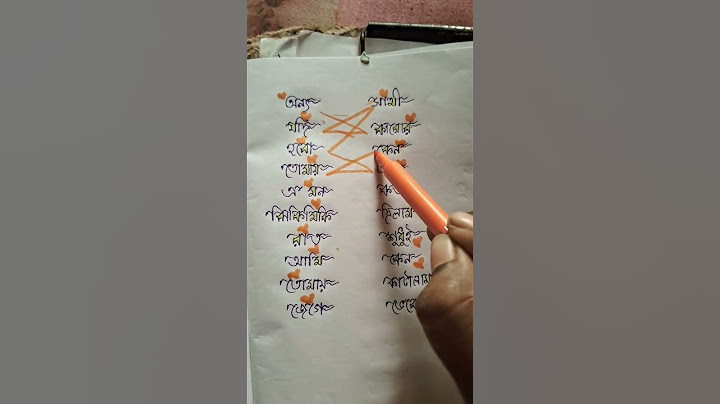 অন্য সাথী
যদি কারোর
হবো কেন
তোমায়
এ মন
ঝিকিমিকি ছিলাম
রাত শুধুই
আমি কেন
তোমায় কাটালাম
জেগে